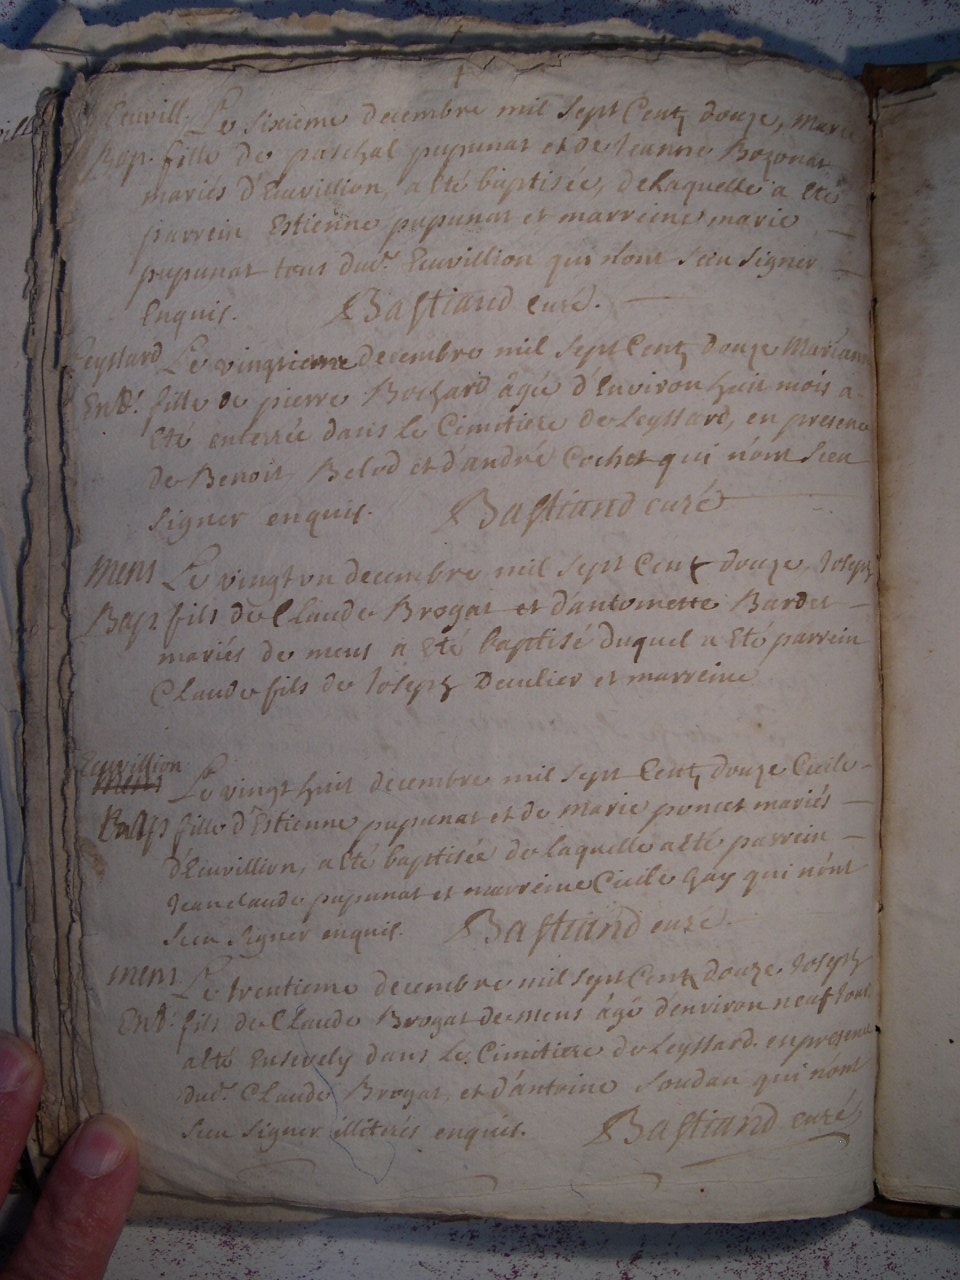 Eeuvill. Le sixieme decembre mil sept Cent douze, Marie
Bap. fille de paschal pupunat et de Jeanne Bozonat
mariés d'Eeuvillion, a eté baptisée, de laquelle a eté
parrein Estienne pupunat et marreine marie
pupunat tous dud. Eeuvillion qui n'ont sceu signer
Enquis. Bastiand curé.
Leyssard Le vingtieme decembre mil sept Cent douze Marianne
Ent. fille de pierre Bochard âgée d'Environ huit mois a
Eté enterrée dans le Cimitiere de Leyssard, en presence
de Benoit Belod et d'andré Cochet qui n'ont sceu
signer enquis. Bastiand curé
mens Le vingt un decembre mil sept Cent douze, Joseph
Bapt fils de Claude Brogat et d'antoinette Bardet
mariés de mens a eté baptisé duquel a eté parrein
Claude fils de Joseph Deculier et marreine
Eeuvillion
mens Le vingt huit decembre mil sept Cent douze Cicile
Bapt fille d'Estienne pupunat et de Marie poncet mariés
d'Eeuvillion, a eté baptisée de laquelle a eté parrein
Jean claude pupunat et marreine Cicile Gay qui n'ont
sceu signer enquis. Bastiand curé.
mens Le trentieme decembre mil sept Cent douze Joseph
Ent. fils de Claude Brogat de mens âgé d'environ neuf jours
a eté Ensevely dans le Cimitiere de Leyssard. en presence
dud. Claude Brogat, et d'antoine Soudan qui n'ont
sceu signer illiterés enquis. Bastiand curé